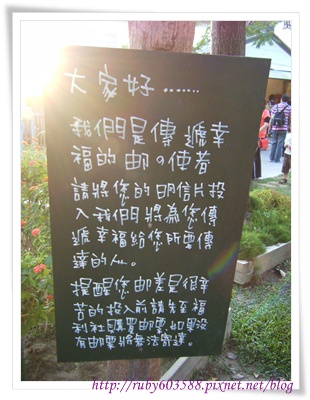 大家好......
我們是傳遞幸
福的郵の使者
請將您的明信片投
入我們將為您傳
遞幸福給您所要傳
達的人。
提醒您郵差是很辛
苦的投入前請先至福
利社購買郵票,如果沒
有郵票將無法寄達。
http://ruby603588.pixnet.net/blog